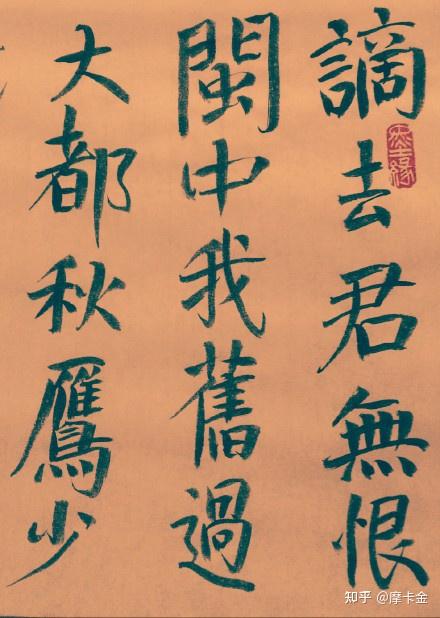 謫去君無恨
閩中我舊過
大都秋鷹少
知乎 @摩卡金